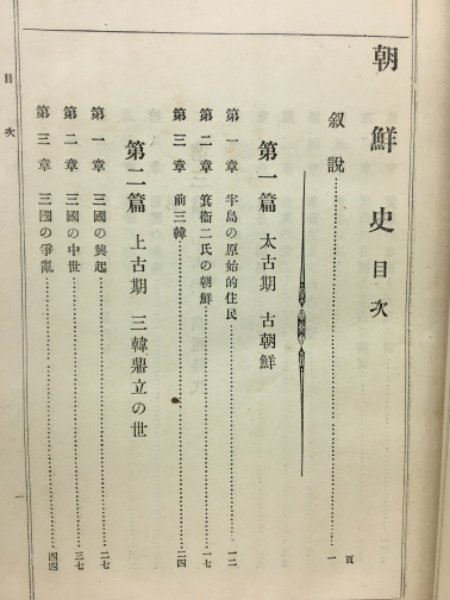 朝鮮史目次
頁
叙說……一
第一篇 太古期 古朝鮮
第一章 半島の原始的住民……一二
第二章 箕衞二氏の朝鮮……一七
第三章 前三韓……二四
第二篇 上古期 三韓鼎立の世
第一章 三國の興起……二七
第二章 三國の中世……三七
第三章 三國の爭亂……四四
目次
一